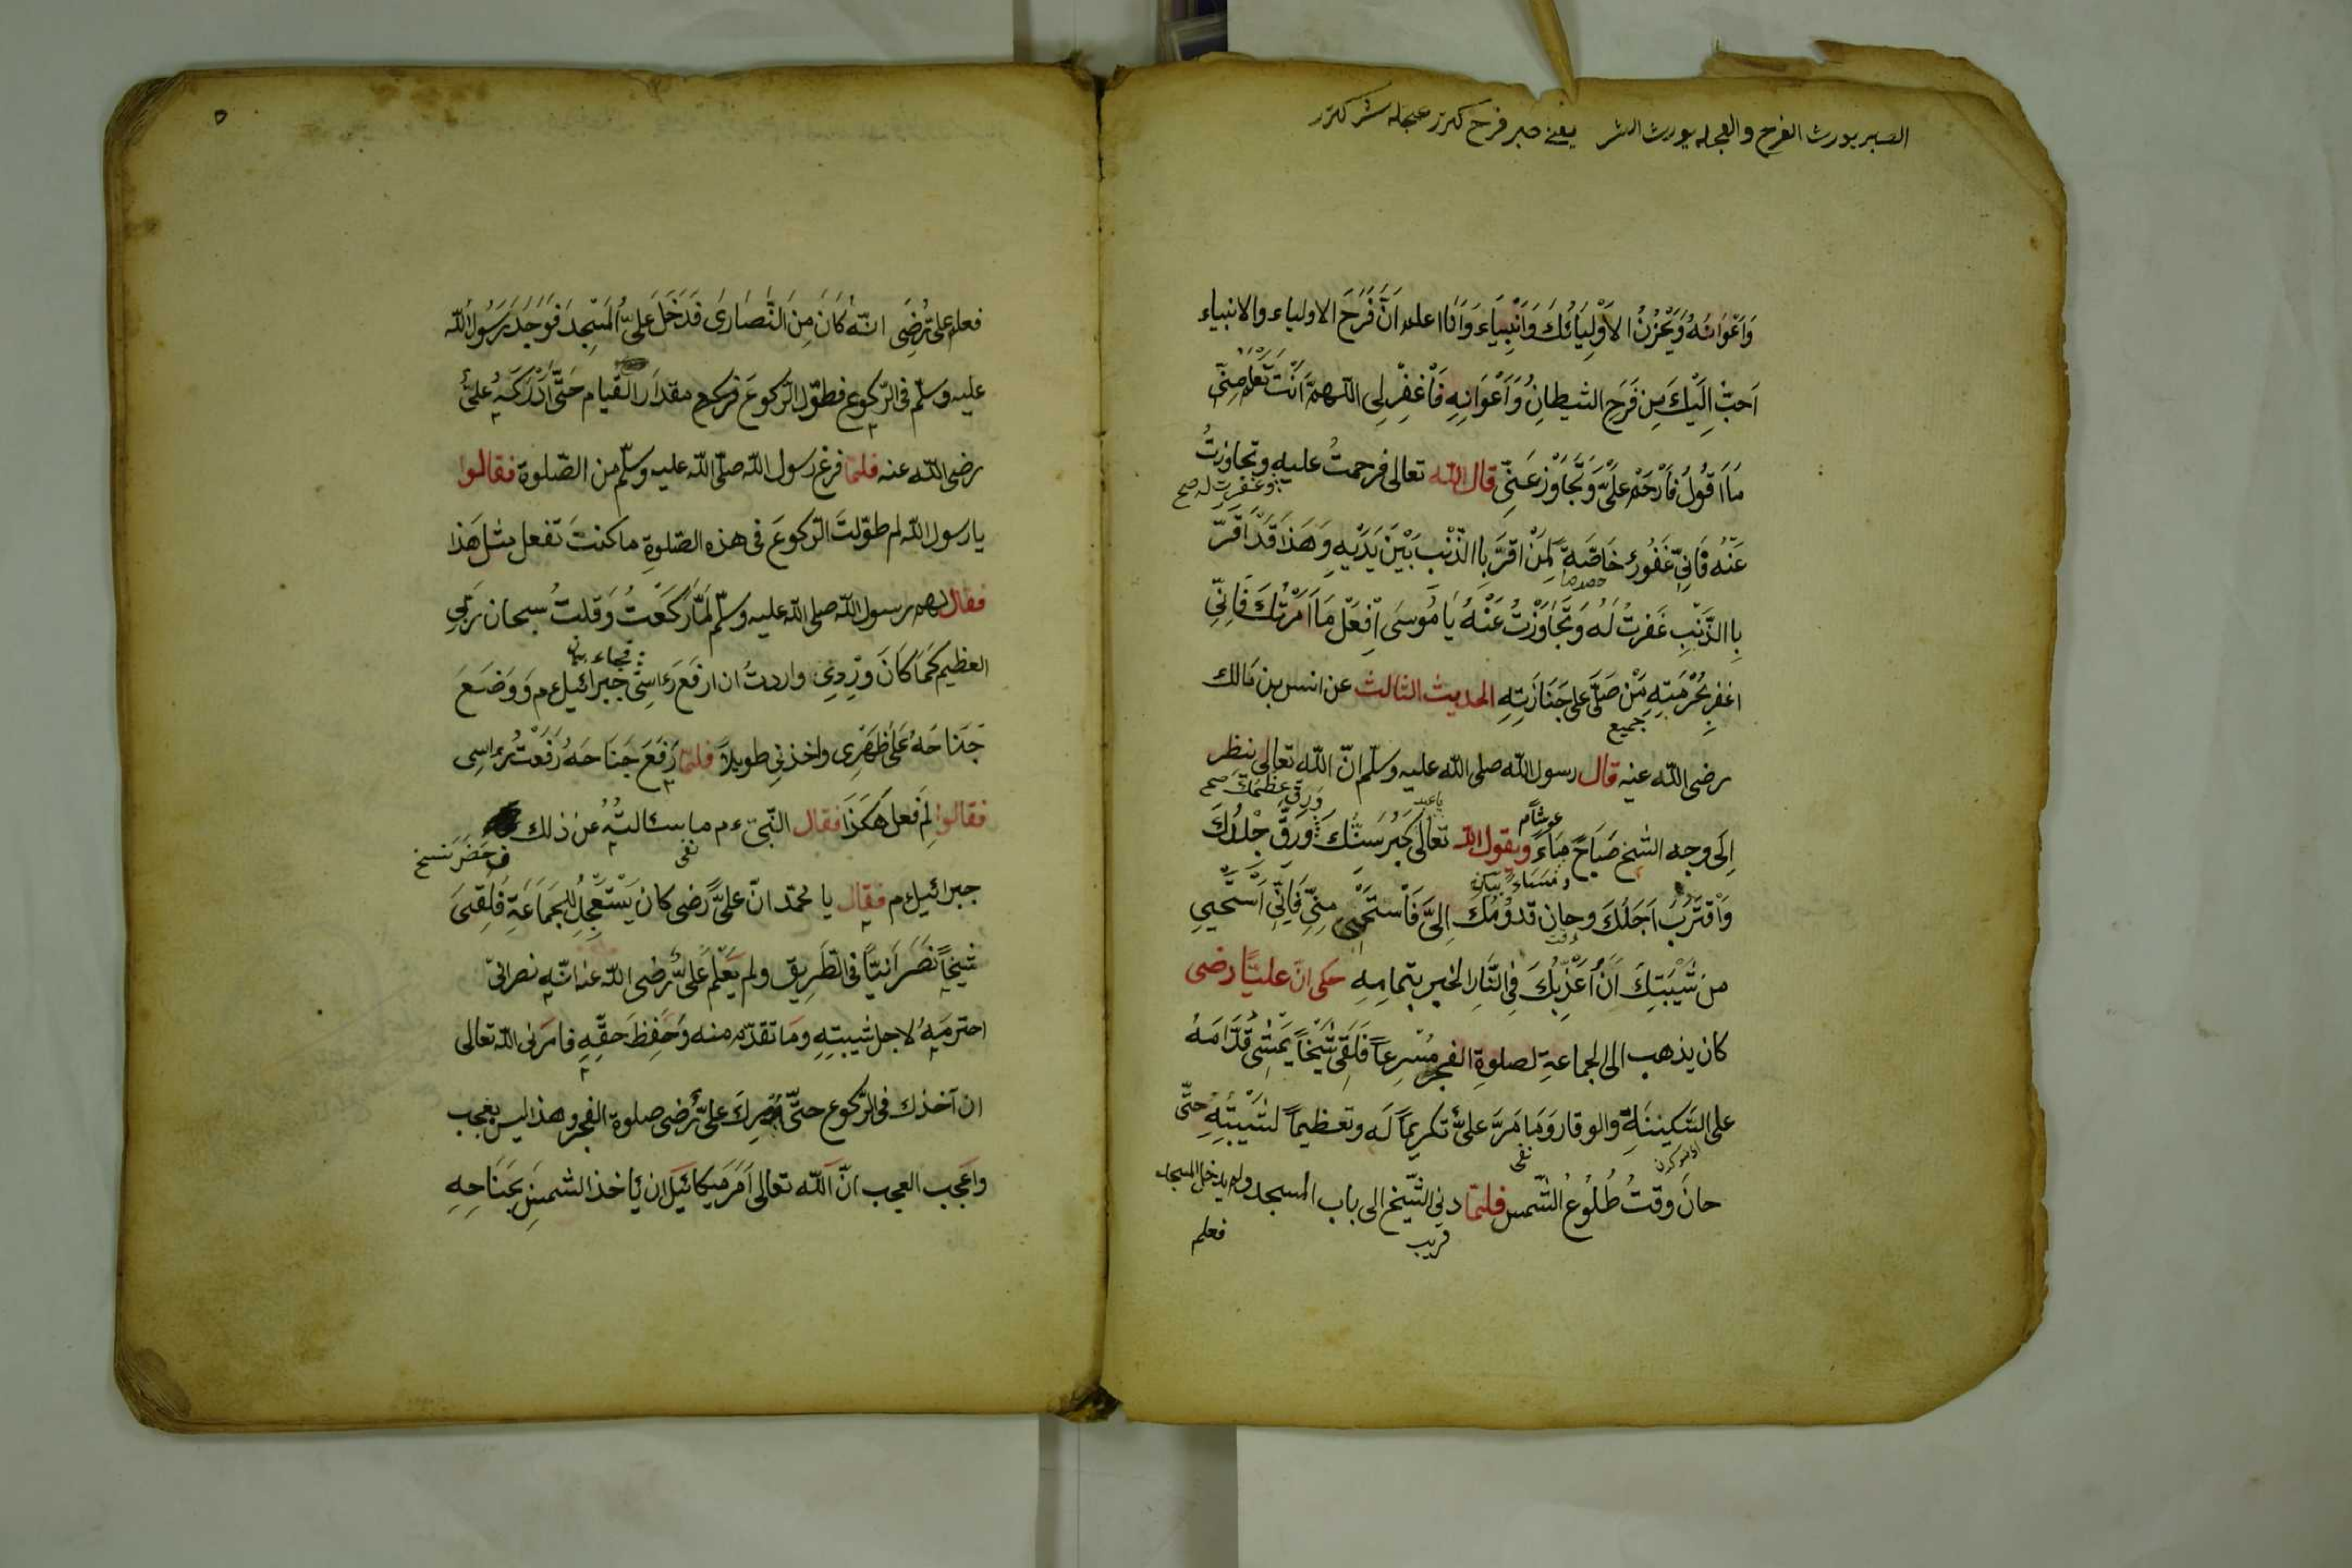 الصبر يورث الفرح والعجله يورث الشر يعنى صبر فرح كتررعجله شر كترر
وَاَعْوَانُهُ وَيَحْزُنُ الاَوْلِيَائُكَ وَانْبِيَاءَ وَاَنَا اعلم اَنَّ فَرَحَ الاولياء والانبياء
اَحبُّ اِلَيْكَ مِن فَرَحِ الشيطانُ وَاَعْوَانِهِ فَاْغفِرْ لِى اللّهمَّ اَنْتَ تَعْلَمُ مِنِّى
مَا اَقُولُ فَاَرْحَمْ عَلَىَّ وَتَجَاوَزْ عَنِّى قال اللّه تعالى فرحمتُ عليه وتجاوزتُ
وغفرت له صح
عَنْهُ فَاِنِّى غَفُورٌ خَاصَّةِ لِمَنْ اقرَّ بِاالذَّنْبِ بَيْنَ يَدَيْهِ وَهَذَا قَدْ اَقَرَّ
خصوصا
بِاالذَّنْبِ غَفرتُ لَهُ وَتَجَاوَزْتُ عَنْهُ يَا مُوسَى اِفْعَلْ مَا اَمَرْتُكَ فَاِنِّى
اغفر بِحُرْمَتِهِ مَنْ صَلَّى على جَنَازَتِهِ الحديث الثالث عن انس بن مَالك
جميع
رضى اللّه عنه قال رسول اللّه صلى اللّه عليه وسلّم انّ اللّه تعالى ينظر
ورقّ عظمك صح
اِلَى وجه الشيخ صَبَاحً مَسَاءً ويقول اللّه تعالى كَبُرَ سَنُّكَ وَرَقَّ جْلدُكَ
وَاْقتَرَبَ اَجَلُكَ وحان قدوُمُكَ اِلىَّ فَاْستَحْيِى مِنِّى فَاِنِّى اَسْتَحْيِى
وقت
منَ شَيْبَتِكَ اَنْ اُعَذِّبُكَ فِى النَّارِ الخبر بتمامِهِ حكى انّ عليًّا رضى
كان يذهب الى الجماعةِ لصلوةِ الفجر مُسْرِعاً فَلَقِىَ شَيْخاً يَمْشِى قُدَّامَهُ
على السَّكِينَةِ والوقار وَمَا مَرَّ عَلىٌّ تكريمًا لَه وتعظيماً لشَيْبَتِهِ حتّى
نفى
حانَ وقتُ طُلُوعُ الشّمس فلمّا دنى الشَّيْخ الى باب المسجد ولم يدخل المسجد
قريب
فعلم
٥
فعلم علىٌّ رضِى انّه كَانَ مِنَ النَّصَارَى فَدَخَلَ عَلىٌّ المَسْجِدَ فَوَجَدَ رَسُولُ اللّه
عليه وسلّم فى الرّكوع فطوّل الرّكوعَ فركع مقدَار القيام حَتَّى اَدْرَكَهُ علىٌّ
رضى اللّه عنه فلمّا فرغ رسول اللّه صلّى اللّه عليه وسلّم من الصّلوة فقالوا
يا رسول اللّه لم طوّلتَ الرّكوعَ فى هذه الصّلوةِ ماكنتَ تفعل مثل هَذا
فقال لهم رسول اللّه صلى اللّه عليه وسلّم لَمّا رَكَعْتُ وَقلتُ سبحان رَبّىِ
العظيم كَمَا كَانَ وَرْدِى واردتُ ان ارفَعَ رَاسِى جبرائيل ءم وَوَضَعَ
فجاء
جَنَاحَهُ عَلَى ظَهْرِى واخذنِى طويلاً فلمّا رَفَعَ جَنَاحَهُ رَفَعْتُ راسِى
فقالوا لِمَ فعل هَكَذَا فقال النّبىّ ءم ما سئالتُهُ عن ذلك
نفى
فحَضَرَ نسخ
جبرائيل ءم فقال يا محمّد انّ عَلىًّ رضى كان يَسْتَعْجِلُ لِلجَمَاعَةِ فَلَقىَ
شيخاً نَصْرَانِيًّا فى الطّريق ولم يَعْلَم عَلىٌّ رضى اللّه عنه انّه نصرانىّ
احترمَهُ لاجل شيبتِهِ ومَا تقدّم منه وَحَفِظَ حقّهِ فامَرَنى اللّه تعالى
ان آخذك فى الرّكوع حتّى يُدْرِكَ علىٌّ رضى صلوة الفجر وهذا ليس بعجب
واَعجب العجب انّ اَللّه تعالى اَمَرَ ميكائيل ان يأخذ الشمسَ بجَنَاحِهِ